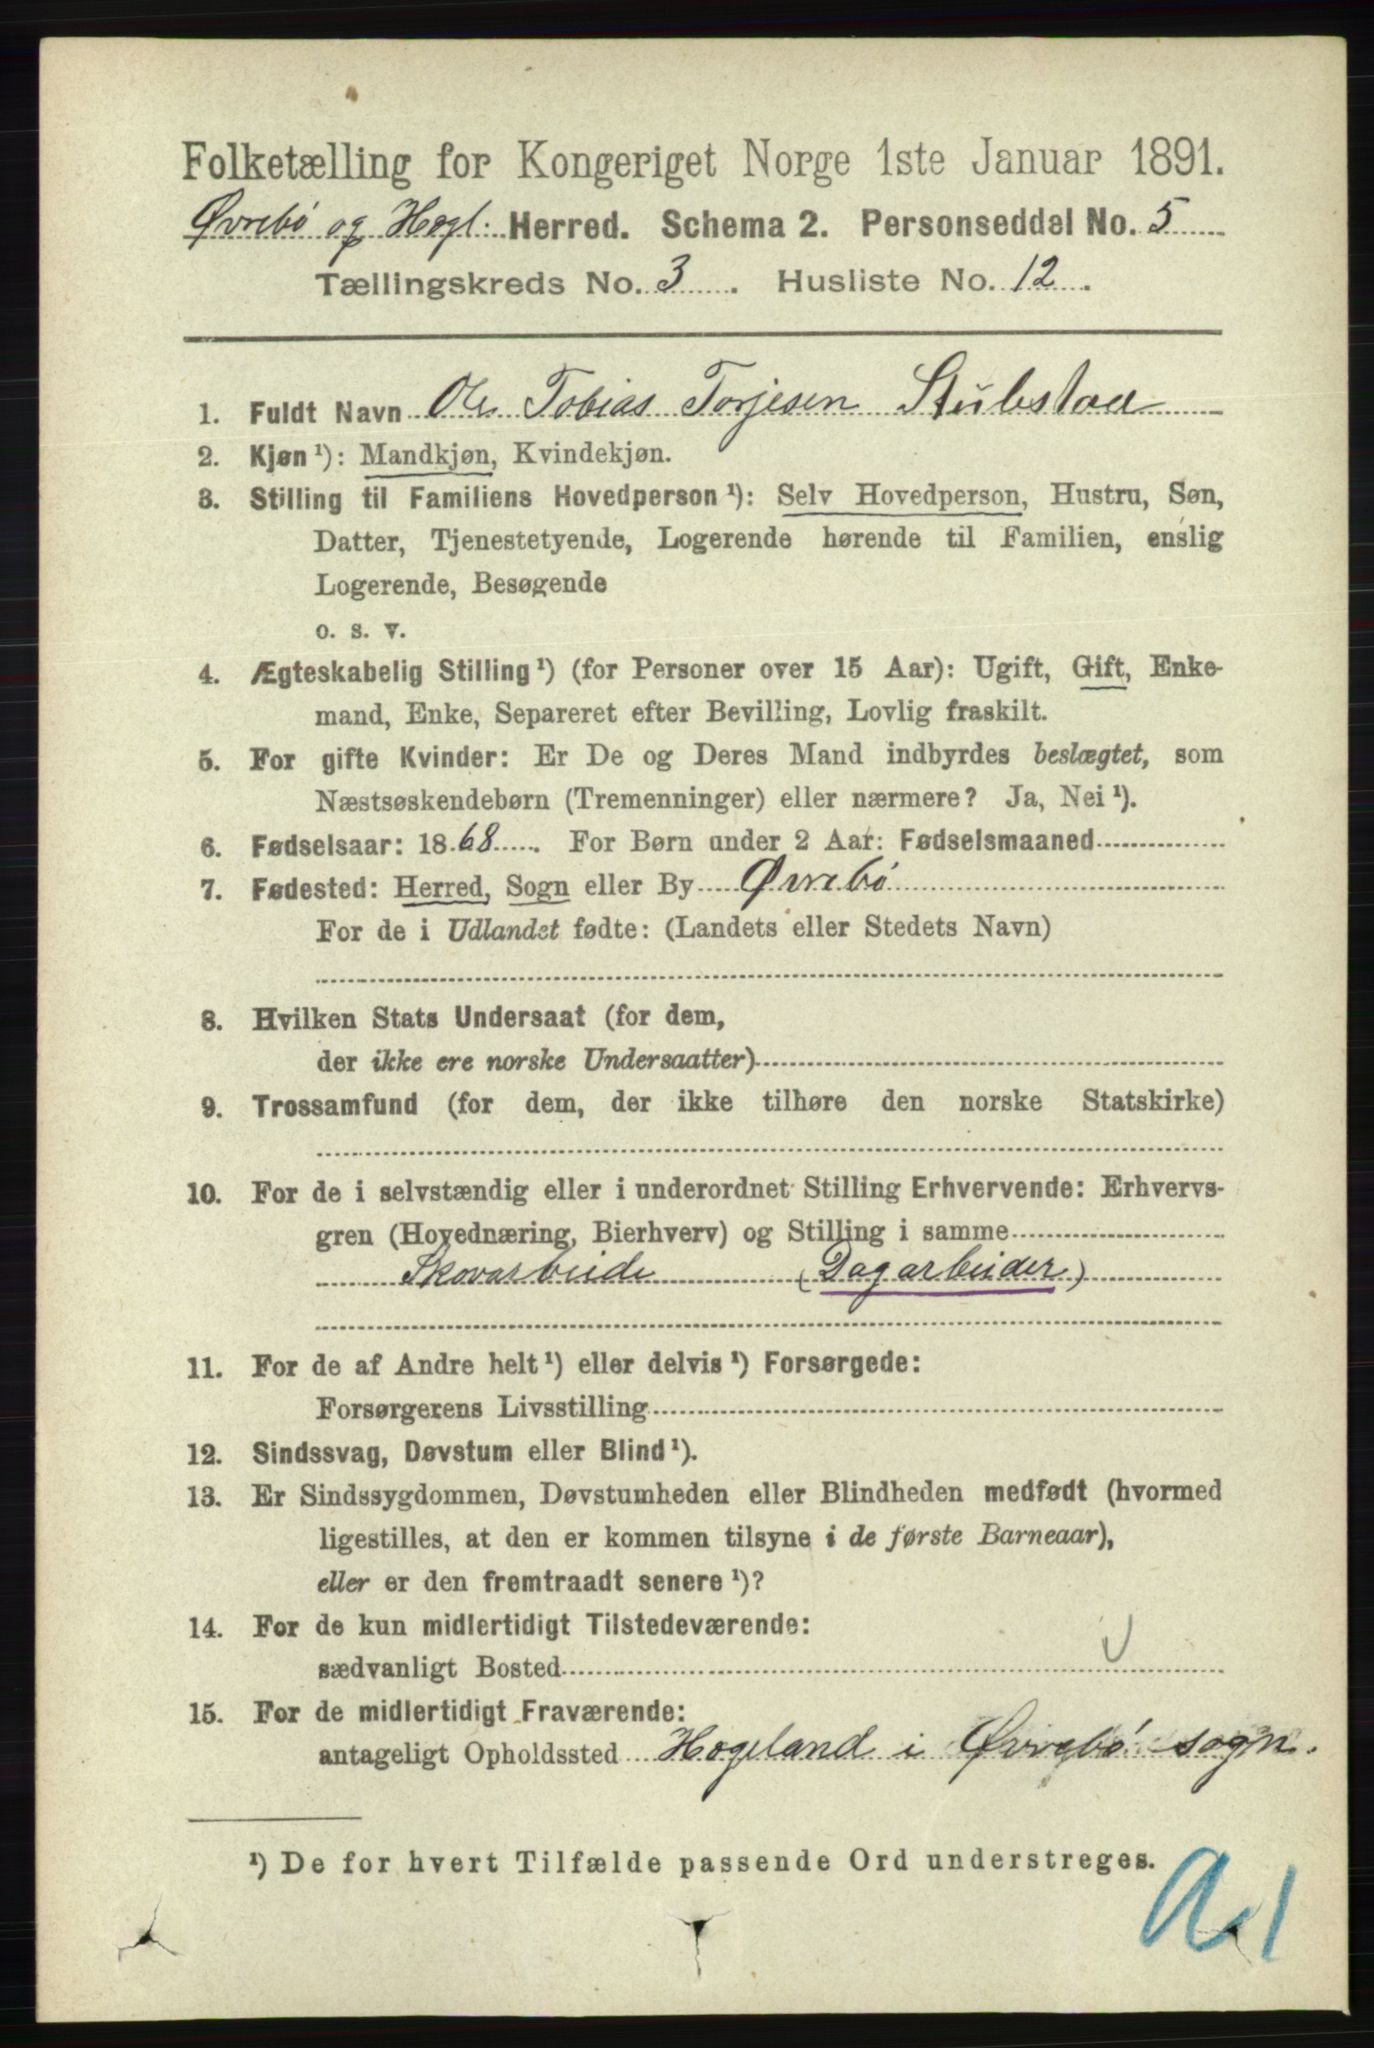 Folketælling for Kongeriget Norge 1ste Januar 1891.
Øvrebø og Hægl: Herred. Schema 2. Personseddel No. 5
Tællingskreds No. 3. Husliste No. 12.
1. Fuldt Navn Ole Tobias Torjesen Stubstad
2. Kjøn ¹): Mandkjøn, Kvindekjøn.
3. Stilling til Familiens Hovedperson ¹): Selv Hovedperson, Hustru, Søn,
Datter, Tjenestetyende, Logerende hørende til Familien, enslig
Logerende, Besøgende
o. s. v.
4. Ægteskabelig Stilling ¹) (for Personer over 15 Aar): Ugift, Gift, Enke-
mand, Enke, Separeret efter Bevilling, Lovlig fraskilt.
5. For gifte Kvinder: Er De og Deres Mand indbyrdes beslægtet, som
Næstsøskendebørn (Tremenninger) eller nærmere? Ja, Nei ¹).
6. Fødselsaar: 1868. For Børn under 2 Aar: Fødselsmaaned
7. Fødested: Herred, Sogn eller By Øvrebø
For de i Udlandet fødte: (Landets eller Stedets Navn)
8. Hvilken Stats Undersaat (for dem,
der ikke ere norske Undersaatter)
9. Trossamfund (for dem, der ikke tilhøre den norske Statskirke)
10. For de i selvstændig eller i underordnet Stilling Erhvervende: Erhvervs-
gren (Hovednæring, Bierhverv) og Stilling i samme
Skovarbeide (Dagarbeider)
11. For de af Andre helt ¹) eller delvis ¹) Forsørgede:
Forsørgerens Livsstilling
12. Sindssvag, Døvstum eller Blind ¹).
13. Er Sindssygdommen, Døvstumheden eller Blindheden medfødt (hvormed
ligestilles, at den er kommen tilsyne i de første Barneaar),
eller er den fremtraadt senere ¹)?
14. For de kun midlertidigt Tilstedeværende:
sædvanligt Bosted
15. For de midlertidigt Fraværende:
antageligt Opholdssted Hageland i Øvrebø sogn.
¹) De for hvert Tilfælde passende Ord understreges.